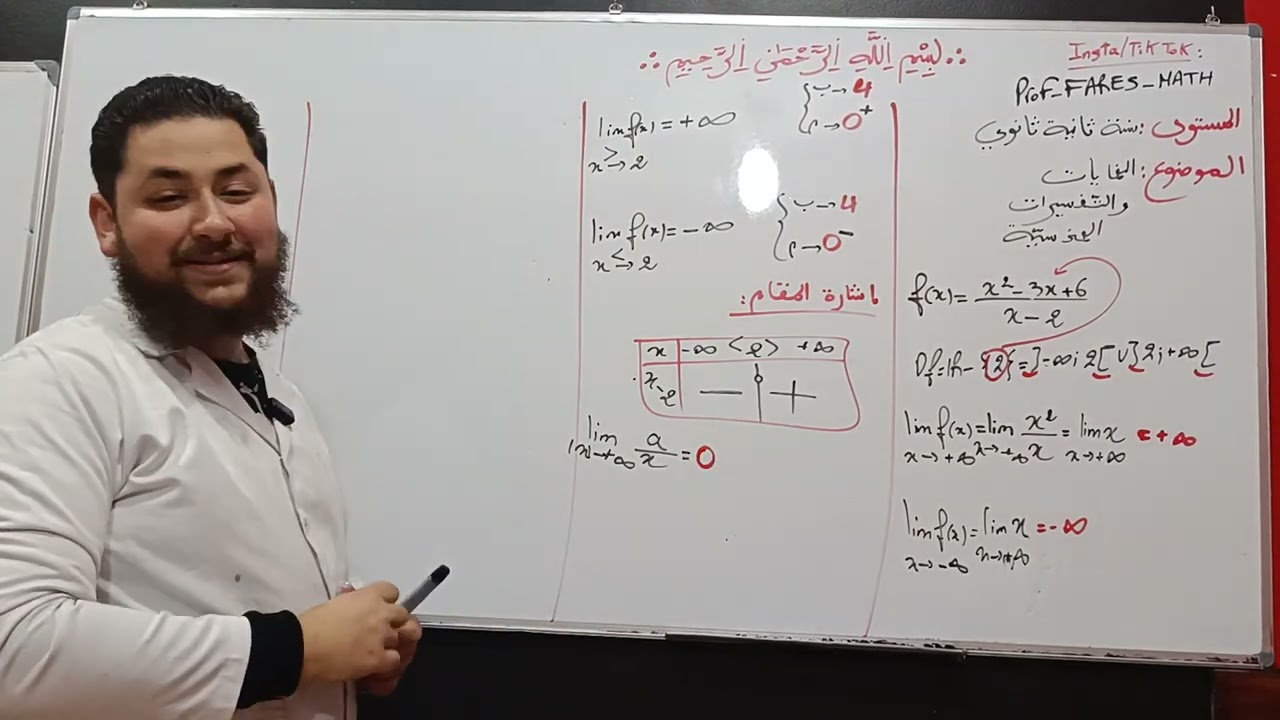 ∴ بِسْمِ اللَّهِ الرَّحْمَٰنِ الرَّحِيمِ ∴
Insta/TikTok:
Prof_FARES_MATH
المستوى: سنة ثانية ثانوي
الموضوع: النهايات
والتفسيرات
الهندسية
f(x)= x²-3x+6 / x-2
Df=ℝ-{2}=]-∞;2[∪]2;+∞[
lim f(x)=lim x²/x = lim x = +∞
x→+∞ x→+∞ x→+∞
lim f(x)=lim x =-∞
x→-∞
lim f(x)=+∞ { ب→4
x→>2 م→0⁺
lim f(x)=-∞ { ب→4
x→<2 م→0⁻
اشارة المقام:
x -∞ <2> +∞
x-2 — +
lim a/x = 0
|x|→+∞